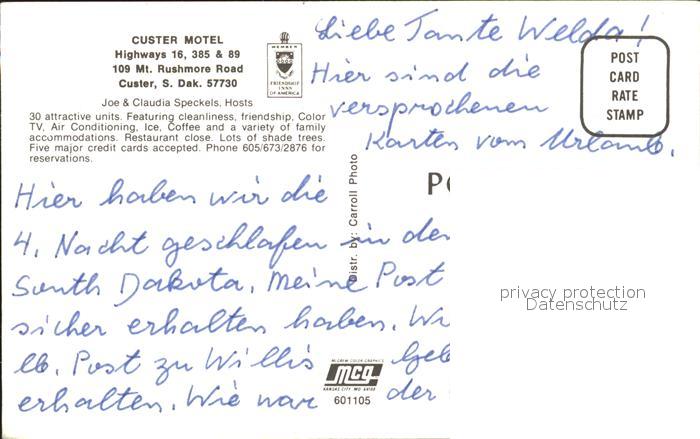 CUSTER MOTEL
Highways 16, 385 & 89
109 Mt. Rushmore Road
Custer, S. Dak. 57730
Joe & Claudia Speckels, Hosts
30 attractive units. Featuring cleanliness, friendship, Color
TV, Air Conditioning, Ice, Coffee and a variety of family
accommodations. Restaurant close. Lots of shade trees.
Five major credit cards accepted. Phone 605/673/2876 for
reservations.
MEMBER
FRIENDSHIP
INNS
OF AMERICA
Liebe Tante Welda!
Hier sind die
versprochenen
Karten vom Urlaub.
POST
CARD
RATE
STAMP
Hier haben wir die
4. Nacht geschlafen in der
South Dakota. Meine Post
sicher erhalten haben. Wi
lb. Post zu Willis Geb
erhalten. Wie war der
Distr. by: Carroll Photo
PO
McGREW COLOR GRAPHICS
mcg
KANSAS CITY, MO. 64108
601105
privacy protection
Datenschutz